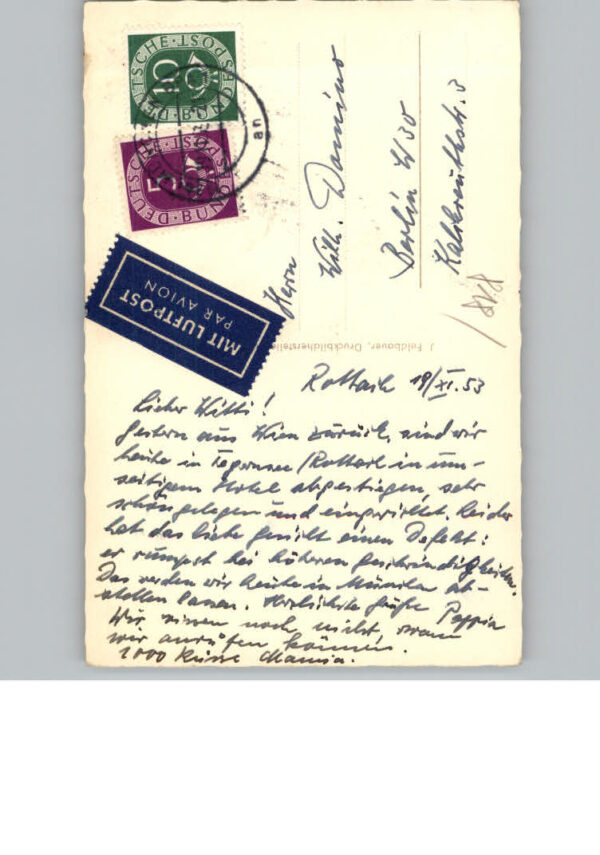 DEUTSCHE BUNDESPOST
10
DEUTSCHE BUNDESPOST
5
an
MIT LUFTPOST
PAR AVION
Herrn
Willi. Domino
Berlin W 30
Kalkreuthstr. 3
J. Feldbauer, Druckbildherstelle
Rottach 19/XI.53
Lieber Willi!
Gestern aus Wien zurück, sind wir
heute in Tegernsee/Rottach in um-
seitigem Hotel abgestiegen, sehr
schön gelegen und eingerichtet. Leider
hat das liebe Gesicht einen Defekt:
er bei höheren Geschwindigkeiten.
Das werden wir heute in München ab-
stellen lassen. Herzlichste Grüße Pappia
Wir wissen noch nicht, wann
wir anrufen können.
1000 Küsse Mamia.